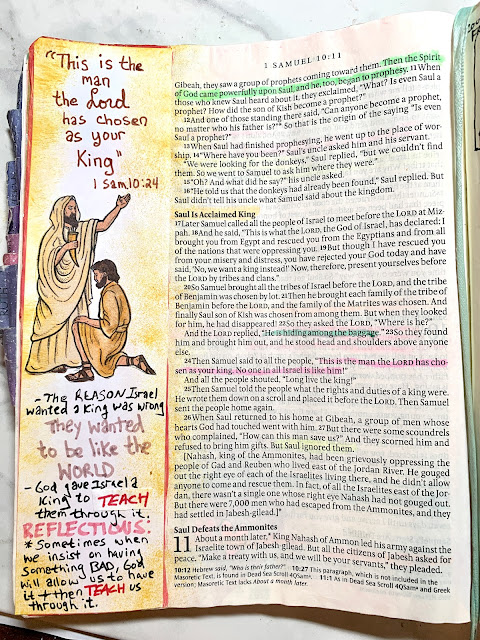 "This is the
man
the Lord
has chosen
as your
King"
1 Sam 10:24
- The REASON Israel
wanted a King was wrong
They wanted
to be like the
WORLD
- God gave Israel a
King to TEACH
them through it.
REFLECTIONS:
* Sometimes when
we insist on having
something BAD, God
will allow us to have
it + then TEACH us
through it.
1 SAMUEL 10:11
Gibeah, they saw a group of prophets coming toward them. Then the Spirit
of God came powerfully upon Saul, and he, too, began to prophesy. 11 When
those who knew Saul heard about it, they exclaimed, "What? Is even Saul a
prophet? How did the son of Kish become a prophet?"
12 And one of those standing there said, "Can anyone become a prophet,
no matter who his father is?" So that is the origin of the saying "Is even
Saul a prophet?"
13 When Saul had finished prophesying, he went up to the place of wor-
ship. 14 "Where have you been?" Saul's uncle asked him and his servant.
"We were looking for the donkeys," Saul replied, "but we couldn't find
them. So we went to Samuel to ask him where they were."
15 "Oh? And what did he say?" his uncle asked.
16 "He told us that the donkeys had already been found," Saul replied. But
Saul didn't tell his uncle what Samuel said about the kingdom.
Saul Is Acclaimed King
17 Later Samuel called all the people of Israel to meet before the LORD at Miz-
pah. 18 And he said, "This is what the LORD, the God of Israel, has declared: I
brought you from Egypt and rescued you from the Egyptians and from all
of the nations that were oppressing you. 19 But though I have rescued you
from your misery and distress, you have rejected your God today and have
said, 'No, we want a king instead!' Now, therefore, present yourselves before
the LORD by tribes and clans."
20 So Samuel brought all the tribes of Israel before the LORD, and the tribe
of Benjamin was chosen by lot. 21 Then he brought each family of the tribe of
Benjamin before the LORD, and the family of the Matrites was chosen. And
finally Saul son of Kish was chosen from among them. But when they looked
for him, he had disappeared! 22 So they asked the LORD, "Where is he?"
And the LORD replied, "He is hiding among the baggage." 23 So they found
him and brought him out, and he stood head and shoulders above anyone
else.
24 Then Samuel said to all the people, "This is the man the LORD has cho-
sen as your king. No one in all Israel is like him!"
And all the people shouted, "Long live the king!"
25 Then Samuel told the people what the rights and duties of a king were.
He wrote them down on a scroll and placed it before the LORD. Then Samuel
sent the people home again.
26 When Saul returned to his home at Gibeah, a group of men whose
hearts God had touched went with him. 27 But there were some scoundrels
who complained, "How can this man save us?" And they scorned him and
refused to bring him gifts. But Saul ignored them.
[Nahash, king of the Ammonites, had been grievously oppressing the
people of Gad and Reuben who lived east of the Jordan River. He gouged
out the right eye of each of the Israelites living there, and he didn't allow
anyone to come and rescue them. In fact, of all the Israelites east of the Jor-
dan, there wasn't a single one whose right eye Nahash had not gouged out.
But there were 7,000 men who had escaped from the Ammonites, and they
had settled in Jabesh-gilead.]*
Saul Defeats the Ammonites
11 About a month later,* King Nahash of Ammon led his army against the
Israelite town of Jabesh-gilead. But all the citizens of Jabesh asked for
peace. "Make a treaty with us, and we will be your servants," they pleaded.
10:12 Hebrew said, "Who is their father?" 10:27 This paragraph, which is not included in the
Masoretic Text, is found in Dead Sea Scroll 4QSamª. 11:1 As in Dead Sea Scroll 4QSamª and Greek
version; Masoretic Text lacks About a month later.